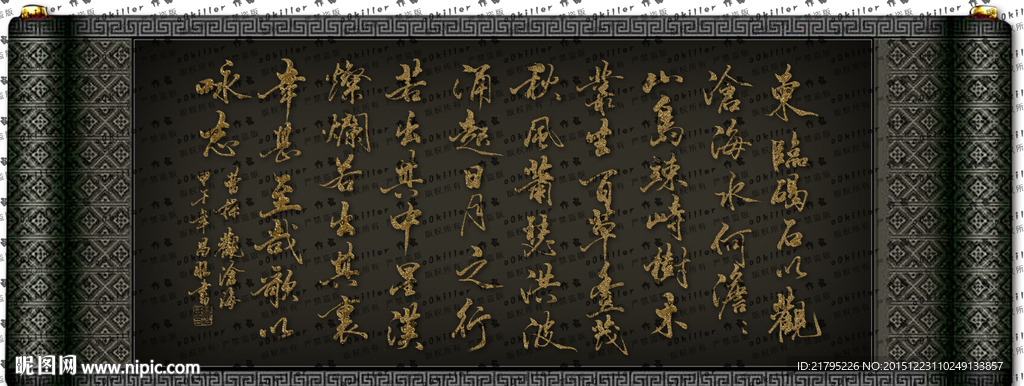 東臨碣石以觀
滄海水何澹〻
山島竦峙樹木
叢生百草豊茂
秋風蕭瑟洪波
涌起日月之行
若出其中星漢
燦爛若出其裏
幸甚至哉歌以
咏志
曹操觀滄海
甲午年書
昵图网 www.nipic.com
ID:21795226 NO:20151223110249133857